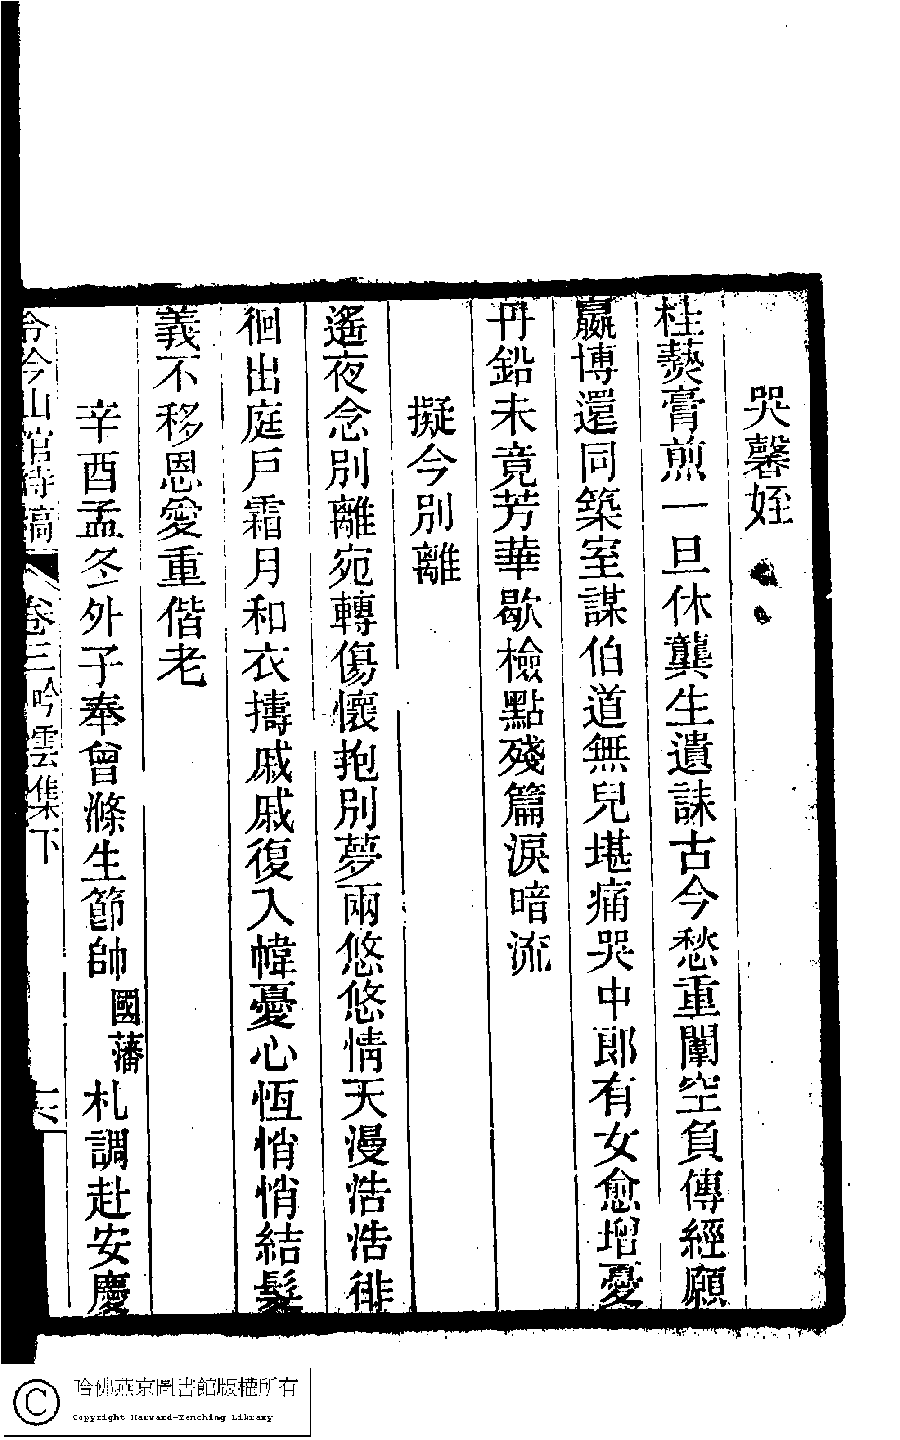 哭馨姪
桂爇膏煎一旦休龔生遺誄古今愁重闈空負傳經願
嬴博還同築室謀伯道無兒堪痛哭中郎有女愈增憂
丹鉛未竟芳華歇檢點殘篇淚暗流
擬今別離
遙夜念別離宛轉傷懷抱別夢兩悠悠情天漫浩浩徘
徊出庭戶霜月和衣擣戚戚復入幃憂心恆悄悄結髮
義不移恩愛重偕老
辛酉孟冬外子奉曾滌生節帥國藩札調赴安慶
冷吟山館詩稿 卷三吟雲集下 十六
哈佛燕京圖書館版權所有
Copyright Harvard-Yenching Library